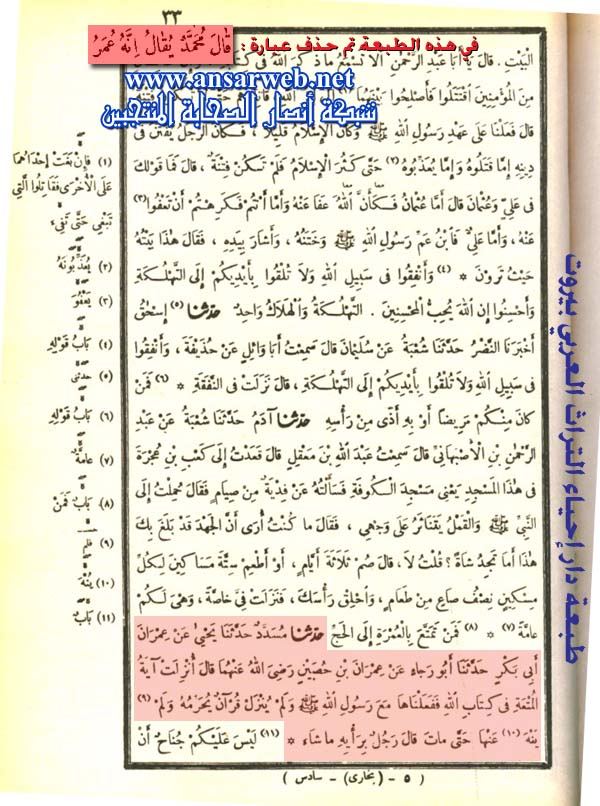 ٣٣
في هذه الطبعة تم حذف عبارة : قَالَ مُحَمَّدٌ يُقَالُ إِنَّهُ عُمَرُ
الْبَيْتِ . قالَ يَا أَبَا عَبْدِ الرَّحْمٰنِ أَلاَ تَسْمَعُ ما ذَكَرَ اللهُ فى كِتَابِهِ
www.ansarweb.net
مِنَ الْمُؤْمِنِينَ اقْتَتَلُوا فَأَصْلِحُوا بَيْنَهُمَا (١)
شبكة أنصار الصحابة المنتجبين
قالَ فَعَلْنَا عَلَى عَهْدِ رَسُولِ اللهِ ﷺ وَكانَ الْإِسْلاَمُ قَلِيلاً ، فَكَانَ الرَّجُلُ يُفْتَنُ فى
دِينِهِ إِمَّا قَتَلُوهُ وَإِمَّا يُعَذِّبُوهُ (٢) حَتَّى كَثُرَ الْإِسْلاَمُ فَلَمْ تَكُنْ فِتْنَةٌ ، قالَ فَمَا قَوْلُكَ
فى عَلِيٍّ وَعُثْمَانَ قالَ أَمَّا عُثْمَانُ فَكَأَنَّ اللهُ عَفَا عَنْهُ وَأَمَّا أَنْتُمْ فَكَرِهْتُمْ أَنْ تَعْفُوا (٣)
عَنْهُ ، وَأَمَّا عَلِيٌّ فَابْنُ عَمِّ رَسُولِ اللهِ ﷺ وَخَتَنُهُ ، وَأَشَارَ بِيَدِهِ ، فَقَالَ هٰذَا بَيْتُهُ
حَيْثُ تَرَوْنَ * (٤) وَأَنْفِقُوا فى سَبِيلِ اللهِ وَلاَ تُلْقُوا بِأَيْدِيكُمْ إِلَى التَّهْلُكَةِ
وَأَحْسِنُوا إِنَّ اللهَ يُحِبُّ الْمُحْسِنِينَ . التَّهْلُكَةُ وَالْهَلَاكُ وَاحِدٌ حَدَّثَنَا (٥) إِسْحٰقُ
أَخْبَرَنَا النَّضْرُ حَدَّثَنَا شُعْبَةُ عَنْ سُلَيْمَانَ قالَ سَمِعْتُ أَبَا وَائِلٍ عَنْ حُذَيْفَةَ ، وَأَنْفِقُوا
فى سَبِيلِ اللهِ وَلاَ تُلْقُوا بِأَيْدِيكُمْ إِلَى التَّهْلُكَةِ ، قالَ نَزَلَتْ فى النَّفَقَةِ * (٦) فَمَنْ
كانَ مِنْكُمْ مَرِيضًا أَوْ بِهِ أَذًى مِنْ رَأْسِهِ حَدَّثَنَا آدَمُ حَدَّثَنَا شُعْبَةُ عَنْ عَبْدِ
الرَّحْمٰنِ بْنِ الْأَصْبَهَانِيِّ قالَ سَمِعْتُ عَبْدَ اللهِ بْنَ مَعْقِلٍ قالَ قَعَدْتُ إِلَى كَعْبِ بْنِ عُجْرَةَ
فى هٰذَا الْمَسْجِدِ يَعْنِى مَسْجِدَ الْكُوفَةِ فَسَأَلْتُهُ عَنْ فِدْيَةٌ مِنْ صِيَامٍ فَقَالَ حُمِلْتُ إِلَى
النَّبِيِّ ﷺ وَالْقَمْلُ يَتَنَاثَرُ عَلَى وَجْهِى ، فَقَالَ ما كُنْتُ أُرَى أَنَّ الْجَهْدَ قَدْ بَلَغَ بِكَ
هٰذَا أَمَا تَجِدُ شَاةً ؟ قُلْتُ لاَ ، قالَ صُمْ ثَلاَثَةَ أَيَّامٍ ، أَوْ أَطْعِمْ سِتَّةَ مَسَاكِينَ لِكُلِّ
مِسْكِينٍ نِصْفُ صَاعٍ مِنْ طَعَامٍ ، وَاحْلِقْ رَأْسَكَ ، فَنَزَلَتْ فِيَّ خاصَّةً ، وَهِيَ لَكُمْ
عامَّةً (٧) * (٨) فَمَنْ تَمَتَّعَ بِالْعُمْرَةِ إِلَى الْحَجِّ حَدَّثَنَا مُسَدَّدٌ حَدَّثَنَا يَحْيٰى عَنْ عِمْرَانَ
أَبِى بَكْرٍ حَدَّثَنَا أَبُو رَجاءٍ عَنْ عِمْرَانَ بْنِ حُصَيْنٍ رَضِىَ اللهُ عَنْهُمَا قالَ أُنْزِلَتْ آيَةُ
الْمُتْعَةِ فى كِتَابِ اللهِ فَفَعَلْنَاهَا مَعَ رَسُولِ اللهِ ﷺ وَلَمْ يُنْزَلْ قُرْآنٌ يُحَرِّمُهُ وَلَمْ (٩)
يَنْهَ (١٠) عَنْهَا حَتَّى ماتَ قالَ رَجُلٌ بِرَأْيِهِ ما شَاءَ * (١١) لَيْسَ عَلَيْكُمْ جُنَاحٌ أَنْ
( ٥ – بخارى) – سادس )
(١) فَإِنْ بَغَتْ إِحْدَاهُمَا
عَلَى الْأُخْرَى فَقَاتِلُوا الَّتِى
تَبْغِى حَتَّى تَفِىءَ
(٢) يُعَذِّبُونَهُ
(٣) يَعْفُوَ
(٤) بَابُ قَوْلِهِ
(٥) حدثنى
(٦) بَابُ قَوْلِهِ
(٧) عامَّةً
(٨) بَابُ فَمَنْ
(٩) فلم
(١٠) يُنْهَ
(١١) بَابٌ
طبعة دار إحياء التراث العربي بيروت